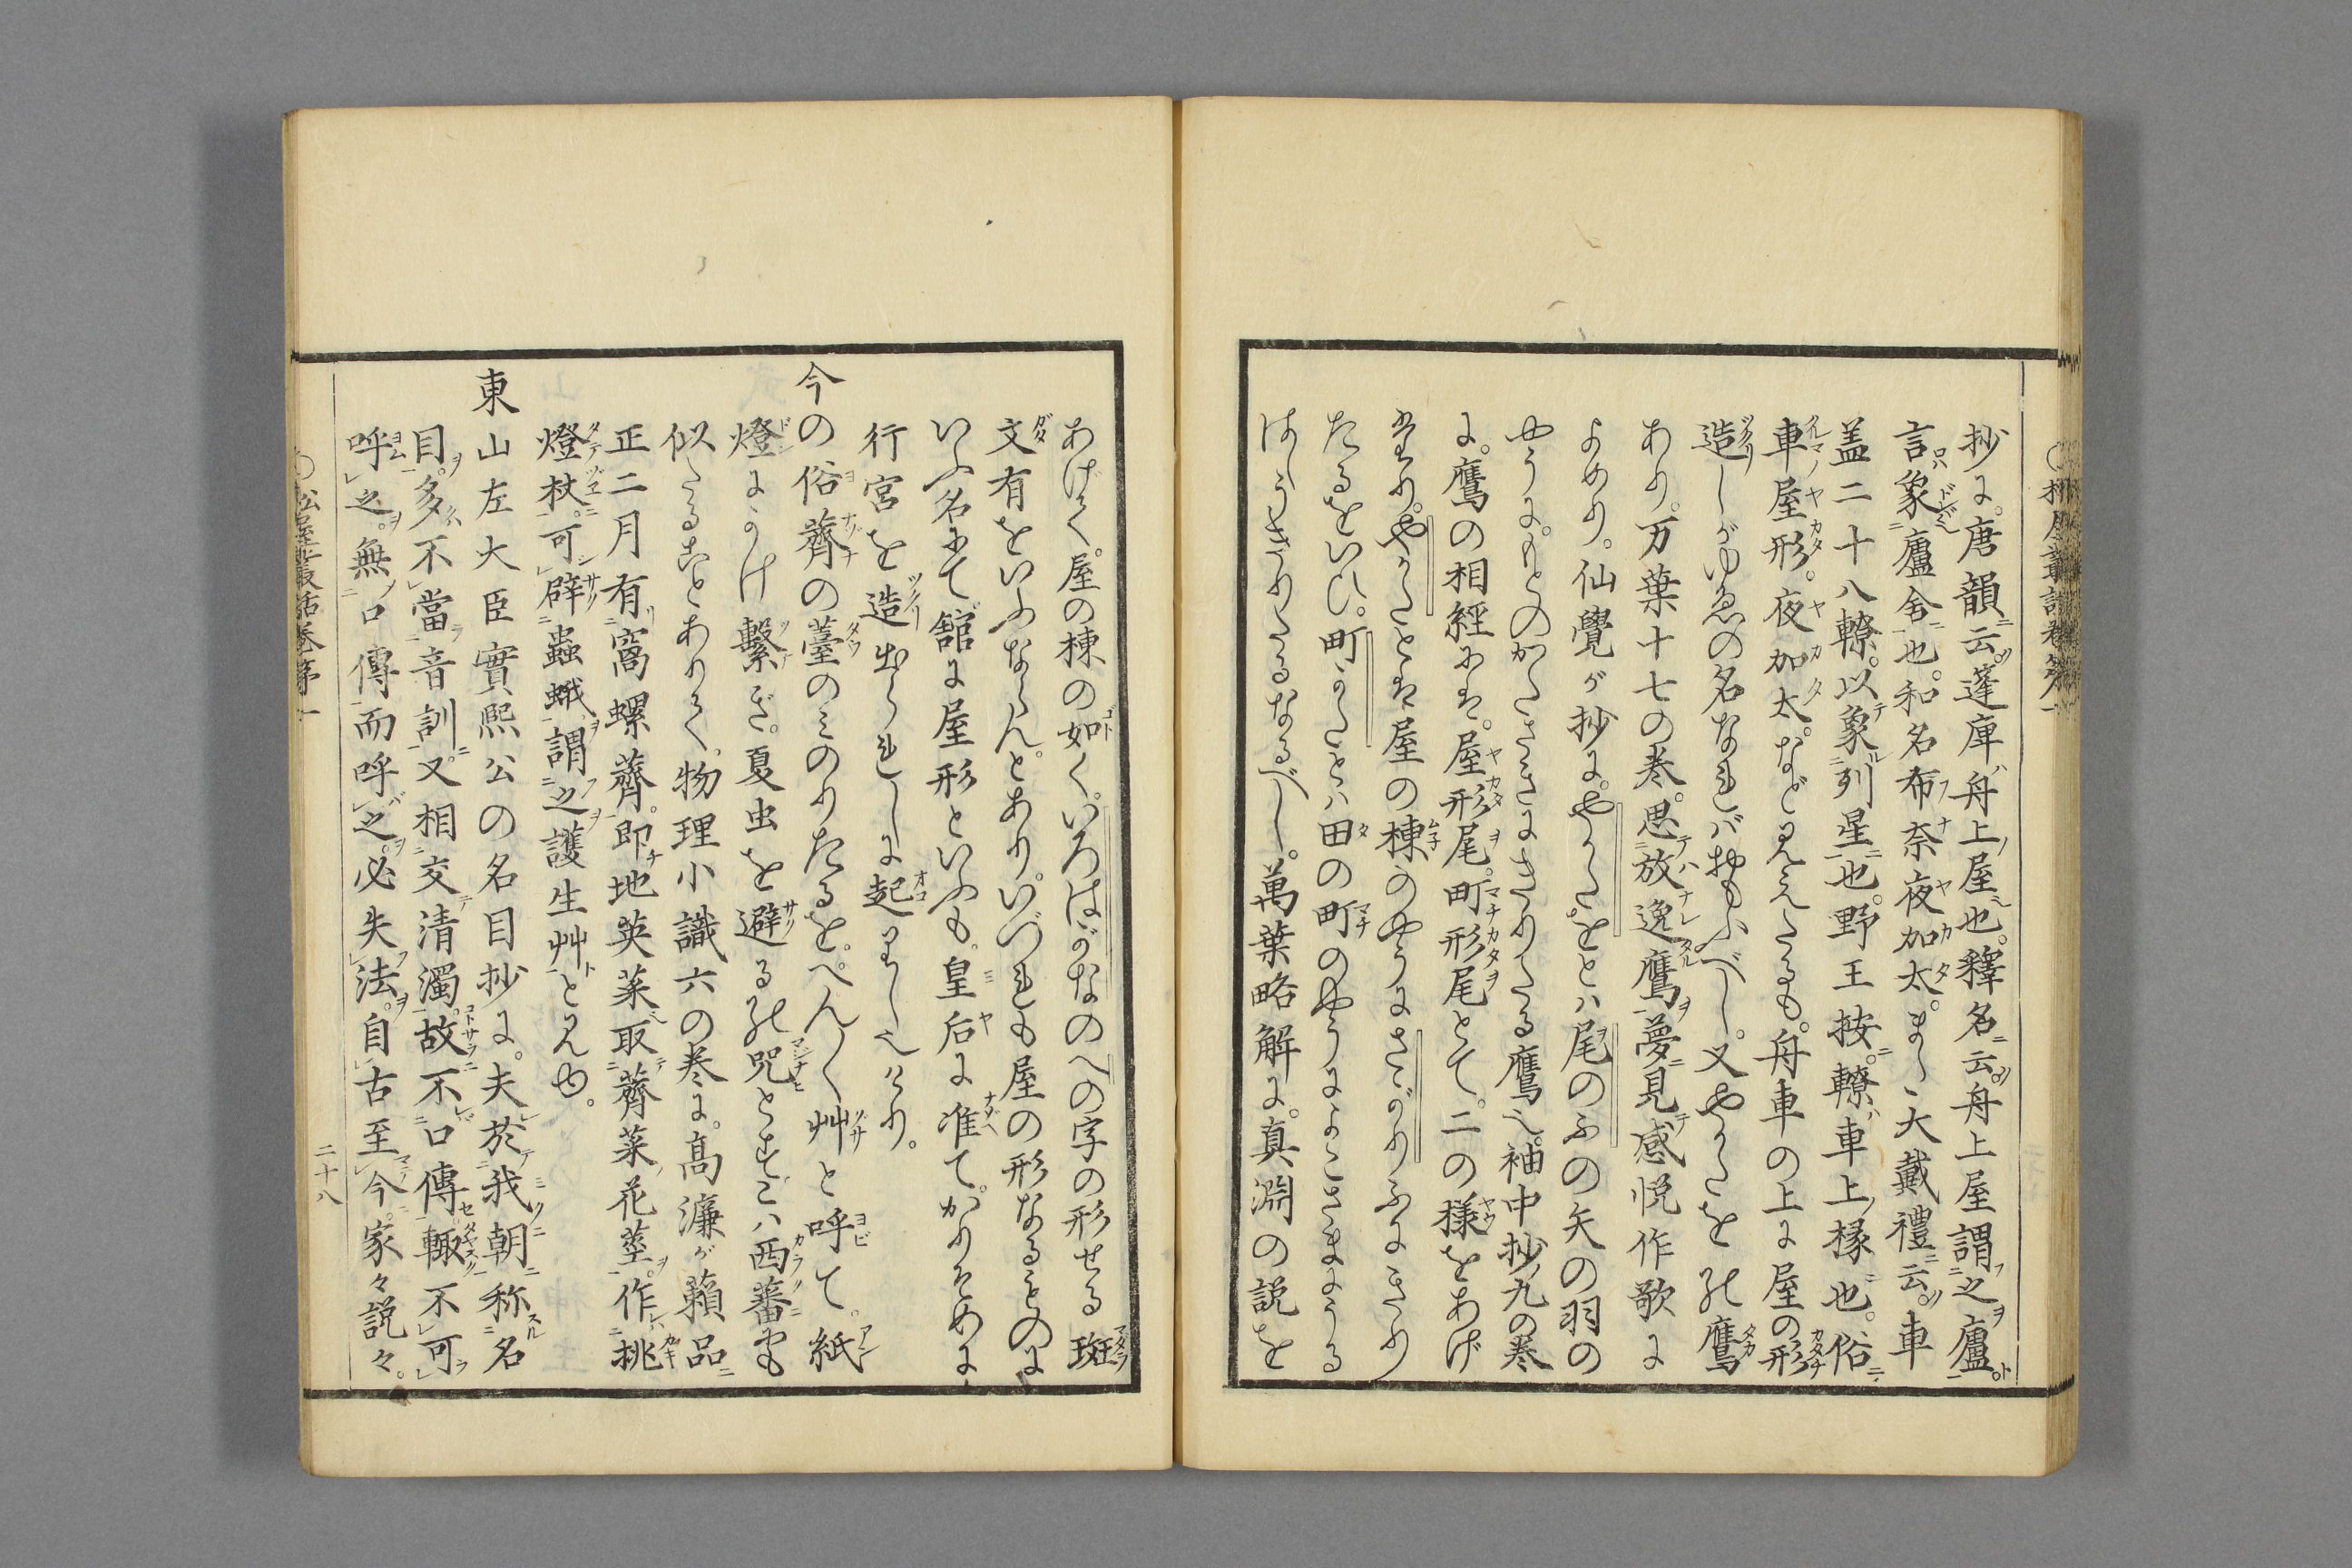 抄に。唐韻云。蓬庫舟上屋也。釋名云。舟上屋謂之廬。
言象廬舎也。和名布奈夜加太。また大戴禮云。車
盖二十八轑。以象列星也。野王按。轑車上椽也。俗
車屋形。夜加太。など見えたるも。舟車の上に屋の形
造しがゆゑの名なればおもふべし。又やかたを能鷹
あり。万葉十七の巻。思放逸鷹夢見感悦作歌に
よめり。仙覺が抄に。やかたをとハ尾のふの矢の羽の
やうに。ものかたさきにきりたる鷹也。袖中抄九の巻
に。鷹の相經にも。屋形尾。町形尾とて。二の様をあげ
やかたとは屋の棟のやうにさがりふにきり
たるをいひ。町かたとハ田の町のやうによこさまにうる
はしうきりたるなるべし。萬葉略解に。真淵の説を
あげて。屋の棟の如く。いろはがなのへの字の形せる斑
文有をいふならん。とあり。いづれも屋の形なるものに
いふ名にて。舘に屋形といふも。皇后に准て。かりそめに
行宮を造出られしに起れりし也けり。
今の俗薺の薹のみのりたるを。ぺんぺん艸と呼て。紙
燈にかけ繋ぎ。夏虫を避る能咒とすめハ西蕃にも
似たることありて。物理小識六の巻に。高濂が籟品
正二月有窩螺薺。即地英菜取薺菜花莖作挑
燈杖。可辟蟲蛾。謂之護生艸と見ゆ。
東山左大臣實熙公の名目抄に。夫於我朝称名
目。多不當音訓。又相交清濁。故不口傳輙不可
呼之。無口傳而呼之。必失法。自古至今。家々説々。
○松屋叢話巻第一
二十八